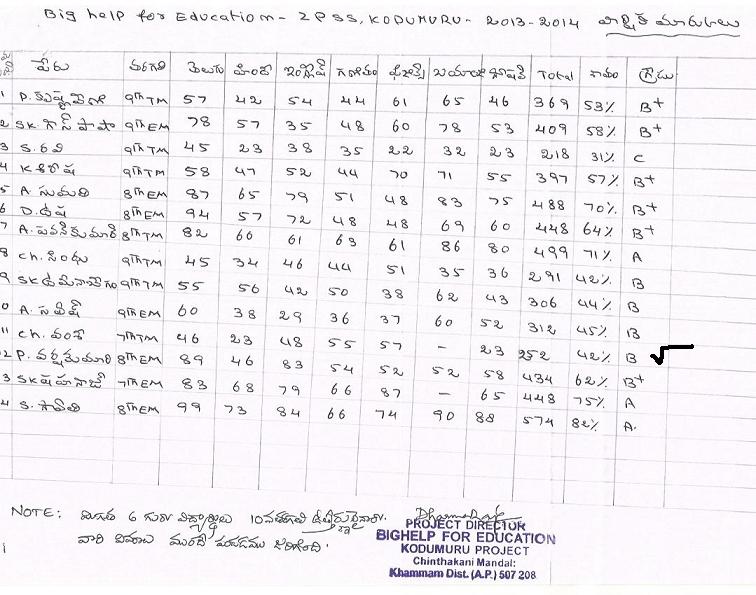 Big help for Education - ZPSS, KODUMURU - 2013-2014 వార్షిక మార్కులు
పేరు తరగతి తెలుగు హిందీ ఇంగ్లీష్ గణితం ఫిజిక్స్ బయాలజీ సోషల్ Total శాతం గ్రేడు
1 P. కృష్ణవేణి 9th TM 57 42 54 44 61 65 46 369 53% B+
2 SK. పాషా 9th EM 78 57 35 48 60 78 53 409 58% B+
3 S. రవి 9th TM 45 23 38 35 22 32 23 218 31% C
4 K. శిరీష 9th TM 58 47 52 44 70 71 55 397 57% B+
5 A. సుమతి 8th EM 87 65 79 51 48 83 75 488 70% B+
6 D. ఉష 8th EM 94 57 72 48 48 69 60 448 64% B+
7 A. పవనికుమారి 8th TM 82 66 61 63 61 86 80 499 71% A
8 ch. సింధు 9th TM 45 34 46 44 51 35 36 291 42% B
9 SK 9th TM 55 56 42 50 38 62 43 306 44% B
0 A. 9th EM 60 38 29 36 37 60 52 312 45% B
11 ch. వంశీ 7th TM 46 23 48 55 57 - 23 252 42% B √
2 P. 8th EM 89 46 83 54 52 52 58 434 62% B+
3 SK షహనాజ్ 7th EM 83 68 79 66 87 - 65 448 75% A
4 S. 8th EM 99 73 84 66 74 90 88 574 82% A.
NOTE: మిగతా 6 గురు విద్యార్థులు 10వ తరగతి
వారి వివరాలు ముందే పంపడము జరిగింది.
PROJECT DIRECTOR
BIGHELP FOR EDUCATION
KODUMURU PROJECT
Chinthakani Mandal:
Khammam Dist. (A.P.) 507 208